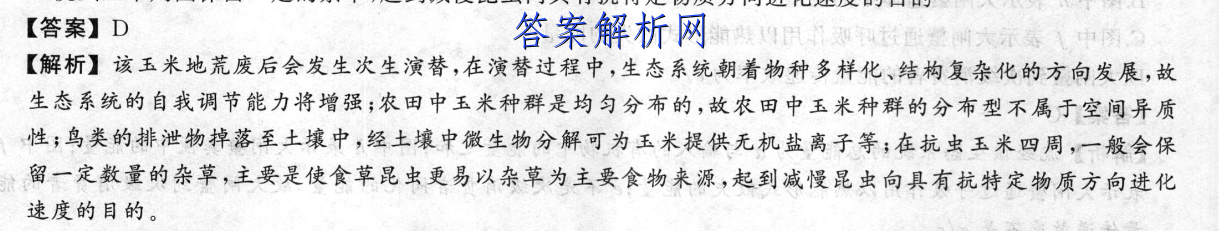 答案解析网
【答案】D
【解析】该玉米地荒废后会发生次生演替,在演替过程中,生态系统朝着物种多样化、结构复杂化的方向发展,故
生态系统的自我调节能力将增强;农田中玉米种群是均匀分布的,故农田中玉米种群的分布型不属于空间异质
性;鸟类的排泄物掉落至土壤中,经土壤中微生物分解可为玉米提供无机盐离子等;在抗虫玉米四周,一般会保
留一定数量的杂草,主要是使食草昆虫更易以杂草为主要食物来源,起到减慢昆虫向具有抗特定物质方向进化
速度的目的。